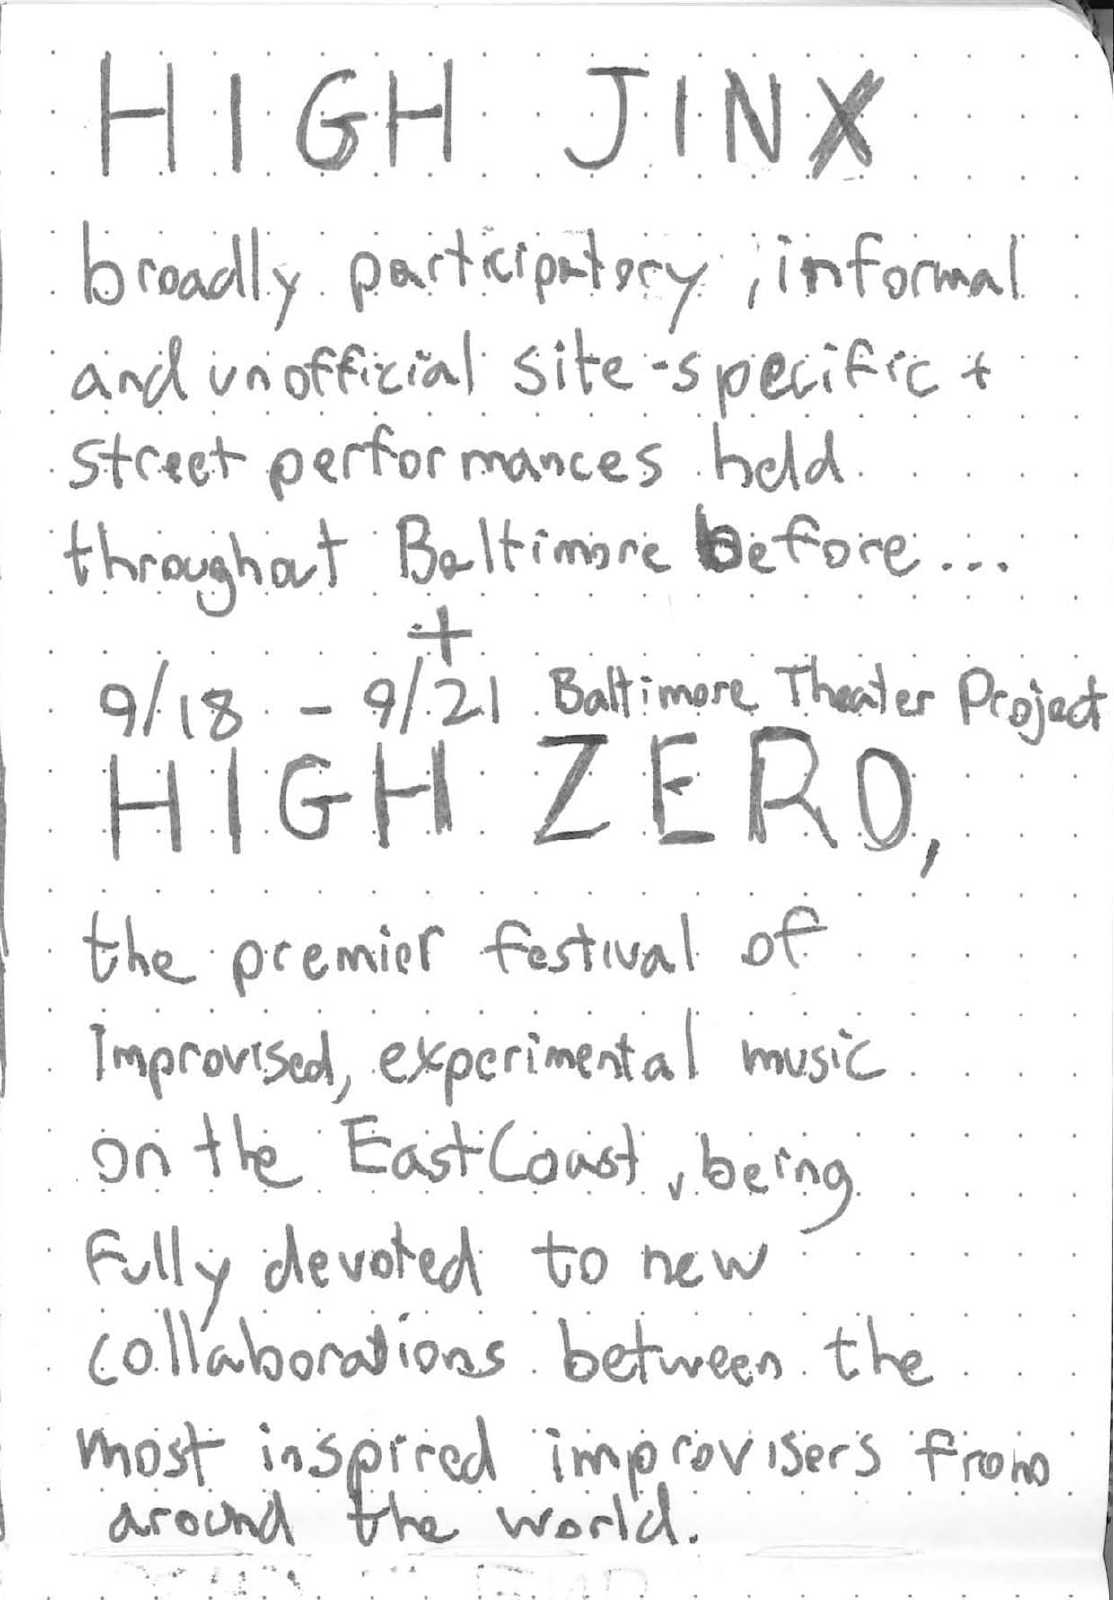 HIGH JINX
broadly participatory, informal
and unofficial site-specific +
street performances held
throughout Baltimore before...
+
9/18 - 9/21 Baltimore Theater Project
HIGH ZERO,
the premier festival of
Improvised, experimental music
on the East Coast, being
fully devoted to new
collaborations between the
most inspired improvisers from
around the world.